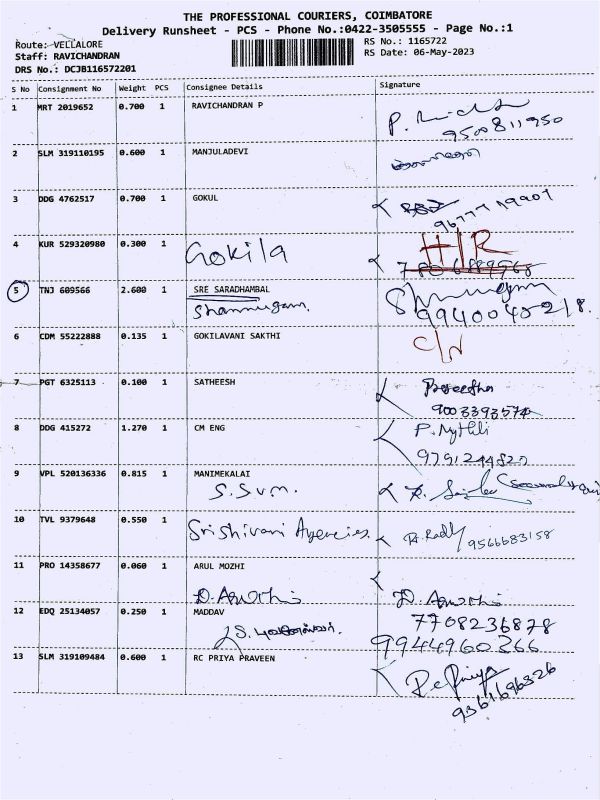 THE PROFESSIONAL COURIERS, COIMBATORE
Delivery Runsheet - PCS - Phone No.:0422-3505555 - Page No.:1
Route: VELLALORE
RS No.: 1165722
Staff: RAVICHANDRAN
RS Date: 06-May-2023
DRS No.: DCJB116572201
S No Consignment No Weight PCS Consignee Details Signature
1 MRT 2019652 0.700 1 RAVICHANDRAN P
9500811950
2 SLM 319110195 0.600 1 MANJULADEVI
3 DDG 4762517 0.700 1 GOKUL
4 KUR 529320980 0.300 1 Gokila
5 TNJ 609566 2.600 1 SRE SARADHAMBAL
Shanmugam.
6 CDM 55222888 0.135 1 GOKILAVANI SAKTHI
7 PGT 6325113 0.100 1 SATHEESH
9003393574
8 DDG 415272 1.270 1 CM ENG P. Mythili
9 VPL 520136336 0.815 1 MANIMEKALAI
S.Svm.
10 TVL 9379648 0.550 1 Sri Shivani Agencies
9566683158
11 PRO 14358677 0.060 1 ARUL MOZHI
12 EDQ 25134057 0.250 1 MADDAV
7708236878
9944960266
13 SLM 319109484 0.600 1 RC PRIYA PRAVEEN
9361696326